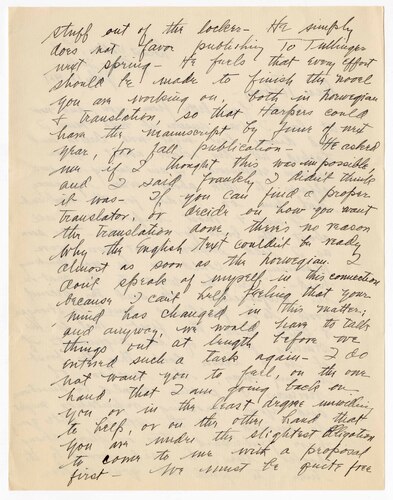 stuff out of the locker – He simply
does not favor publishing To Tullinger
next spring – He feels that every effort
should be made to finish the novel
you are working on, both in Norwegian
& translation, so that Harpers could
have the manuscript by June of next
year, for fall publication – He asked
me if I thought this was impossible,
and I said frankly I didn't think
it was – If you can find a proper
translator, or decide on how you want
the translation done, there's no reason
why the English text couldn't be ready
almost as soon as the Norwegian. I
don't speak of myself in this connection
because I can't help feeling that your
mind has changed in this matter;
and anyway, we would have to talk
things out at length before we
entered such a task again – I do
not want you to feel, on the one
hand, that I am going back on
you or in the least degree unwilling
to help, or on the other hand that
you are under the slightest obligation
to come to me with a proposal
first – We must be quite free